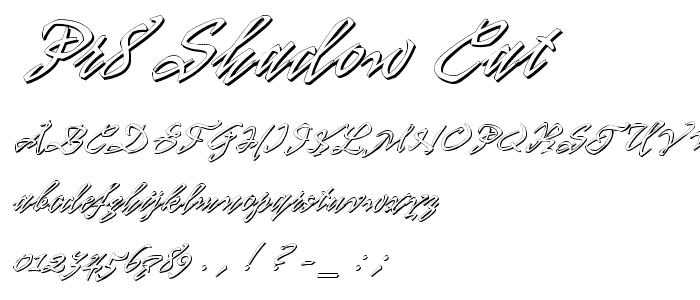 Pr8 Shadow Cat
ABCDEFGHIJKLMNOPQRSTUV
abcdefghijklmnopqrstuvwxyz
0123456789 . , ! ? - _ : ;